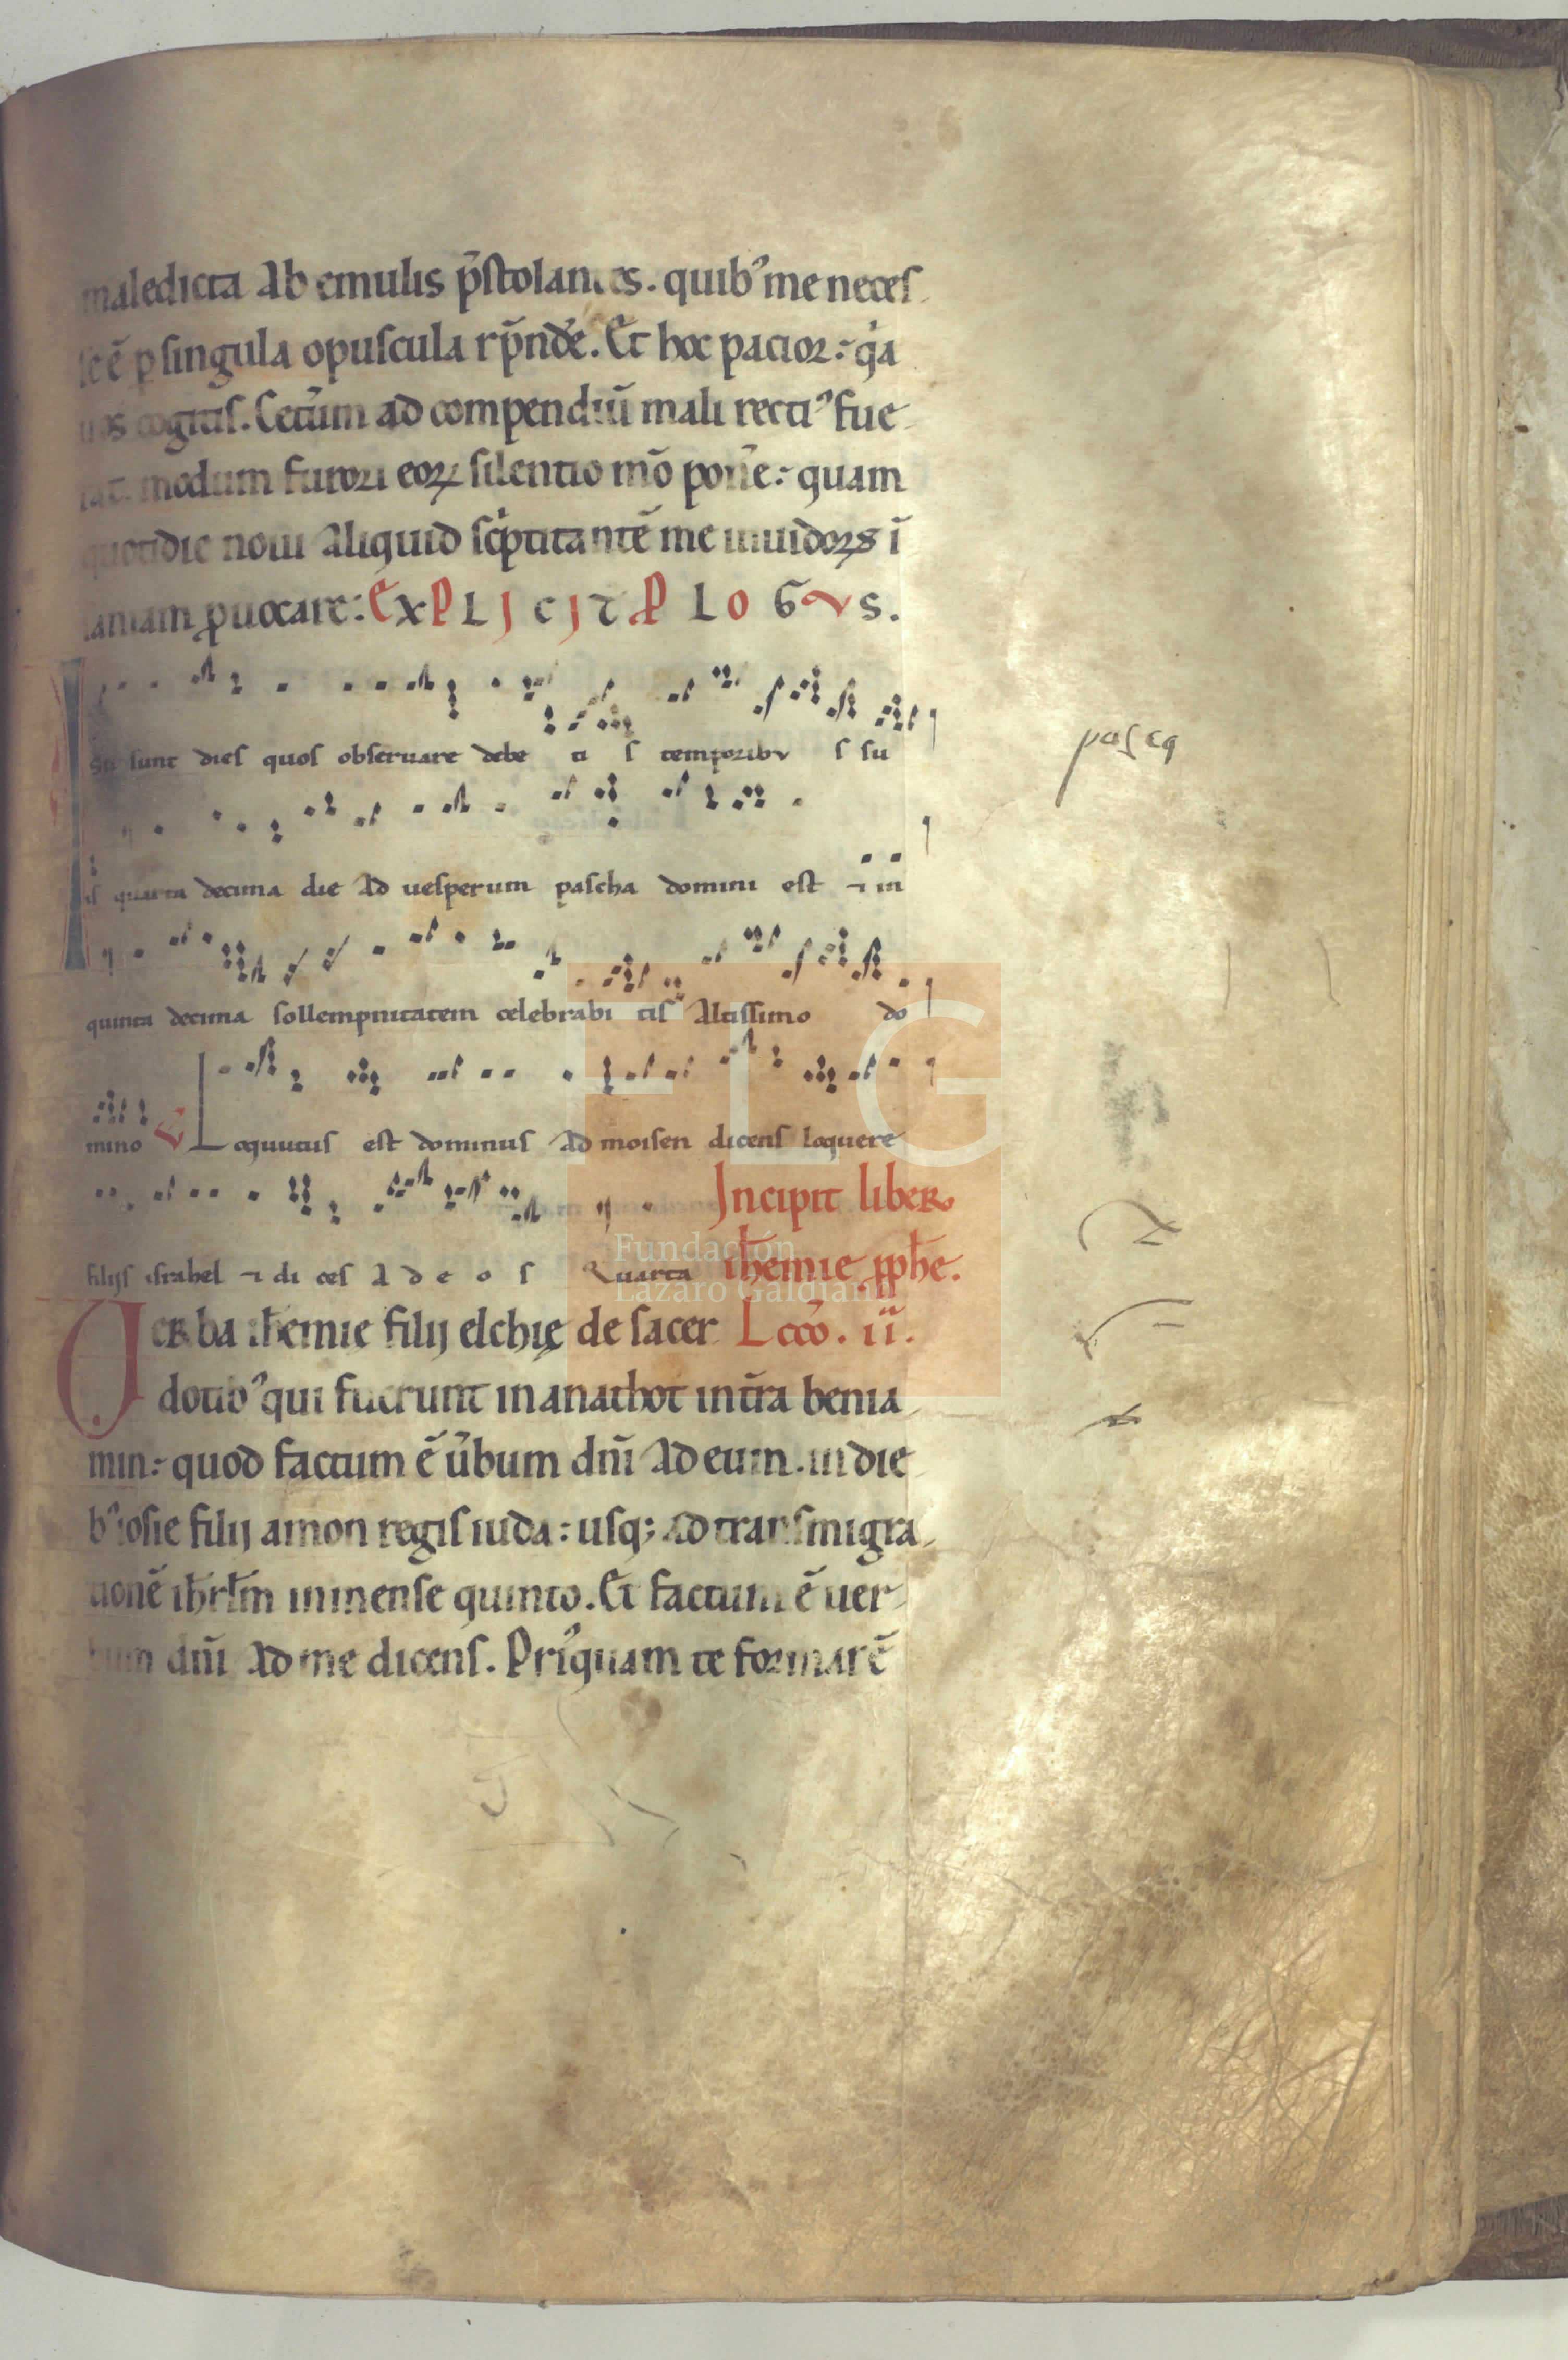 maledicta ab emulis p̄stolantes. quibꝰ me necesſ
se ē ꝑ singula opuscula rn̄dēe. Et hoc pacior: qͥa
uos cogitis. Cet̄um ad compendiū mali rectiꝰ fue
rat. modum furori eoꝝ silentio mō pon̄e: quam
quotidie noui aliquid scͥptitantē me inuidoꝝ ī
saniam ꝓuocare: EXPLJCJT P LOGVS.
Isti sunt dies quos obseruare debe ti s temporibu s su
is quarta decima die ad uesperum pascha domini est ⁊ in
quinta decima sollempnitatem celebrabi tis altissimo do
mino Loquutus est dominus ad moisen dicens loquere
filijs israhel ⁊ di ces a d e o s Quarta Jncipit liber
ih̄emie ꝓph̄e.
Uerba ih̄emie filij elchię de sacer Lcc̄o. ii.
dotibꝰ qui fuerunt in anathot in tr̄a benia
min: quod factum ē ūbum dn̄i ad eum. in die
bꝰ iosie filij amon regis iuda: usqꝫ ad transmigra
tionē ih̄rlm̄ in mense quinto. Et factum ē uer
bum dn̄i ad me dicens. Pri̾quam te formarē
pascq
FLG
Fundación
Lázaro Galdiano